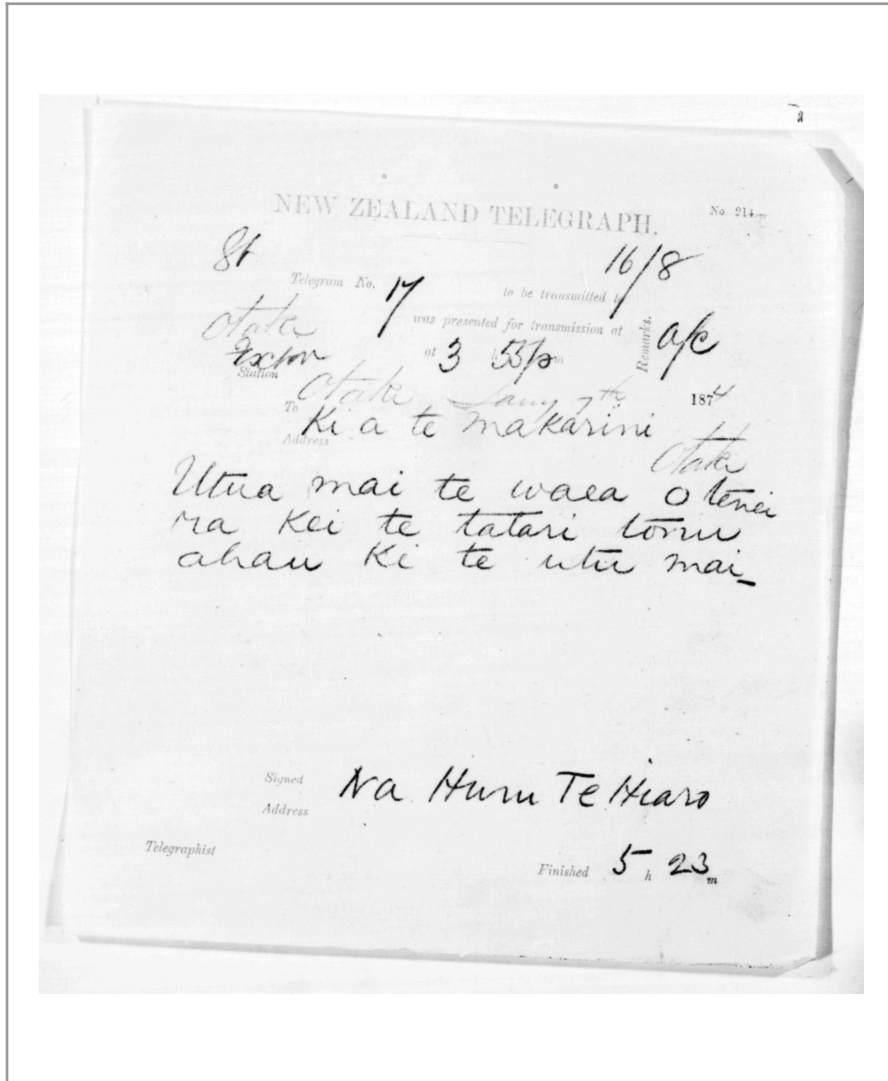 NEW ZEALAND TELEGRAPH.
No. 214
Telegram No. 17 to be transmitted to 16/8
Otaki was presented for transmission at
Station at 3 h 55 p m Remarks. a/c
Otaki Jany 7th 1874
To Ki a te makarini
Address Otaki
Utua mai te waea o tenei
ra kei te tatari tonu
ahau ki te utu mai
Signed Na Huru Te Hiaro
Address
Telegraphist
Finished 5 h 23 m